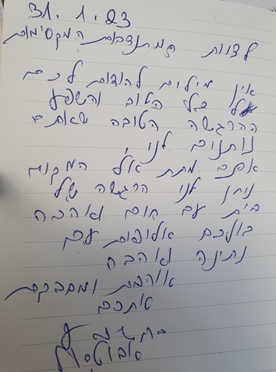 31.1.23
לצוות המתנדבות המקסימות
אין מילים להודות לכם
על כל הטוב והשפע
ההרגשה הטובה שאתם
נותנים לנו,
אתם מתת אל המקום
נותן לנו הרגשה של
בית עם חום ואהבה
כולכם אלופות עם
נתינה ואהבה
אוהבת ומחבקת
אתכם